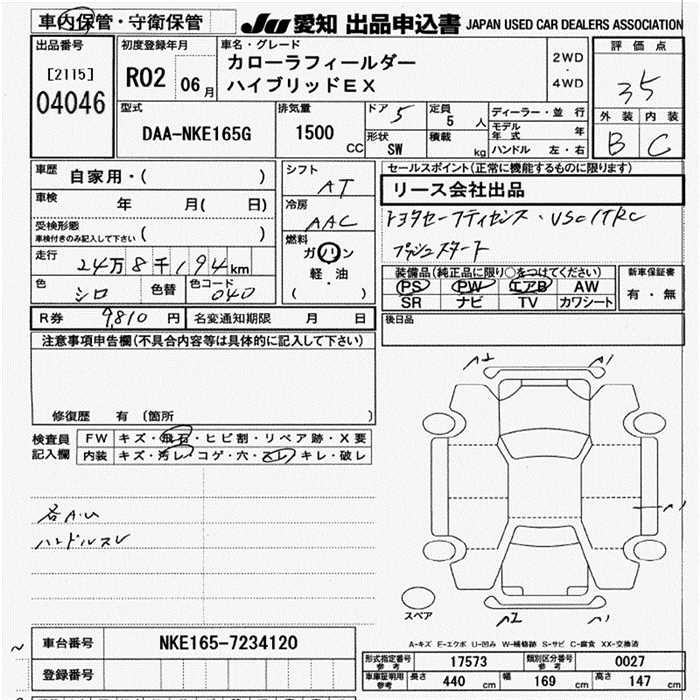 車内保管・守衛保管
JU 愛知 出品申込書 JAPAN USED CAR DEALERS ASSOCIATION
出品番号
[2115]
04046
初度登録年月
R02 06月
車名・グレード
カローラフィールダー
ハイブリッドEX
2WD
・
4WD
評価点
35
外装 内装
B C
型式
DAA-NKE165G
排気量
1500 CC
ドア 5
形状 SW
定員 5 人
積載 kg
ディーラー・並行
モデル年式 年
ハンドル 左・右
車歴 自家用・( )
車検 年 月( 日)
受検形態
車検付きのみ記入して下さい ( )
走行 24万8千194km
色 シロ 色替 色コード 040
シフト
AT
冷房
AAC
燃料
ガソリン
軽・油
( )
セールスポイント(正常に機能するものに限り)
リース会社出品
トヨタセーフティセンス・VSC/TRC
プッシュスタート
装備品(純正品に限り○をつけてください)
PS PW エアB AW
SR ナビ TV カワシート
新車保証書
有・無
R券 9,810円 名変通知期限 月 日
後日品
注意事項申告欄(不具合内容等は具体的に記入して下さい)
修復歴 有 (箇所 )
検査員記入欄
FW キズ・飛石・ヒビ割・リペア跡・X要
内装 キズ・汚レ・コゲ・穴・スレ・キレ・破レ
各A.U
ハンドルスレ
A2 A1
A1
A2 A1
スペア
A-キズ E-エクボ U-凹み W-補修跡 S-サビ C-腐食 XX-交換済
車台番号 NKE165-7234120
登録番号
形式指定番号参考 17573 類別区分番号参考 0027
車庫証明用参考 長さ 440 cm 幅 169 cm 高さ 147 cm